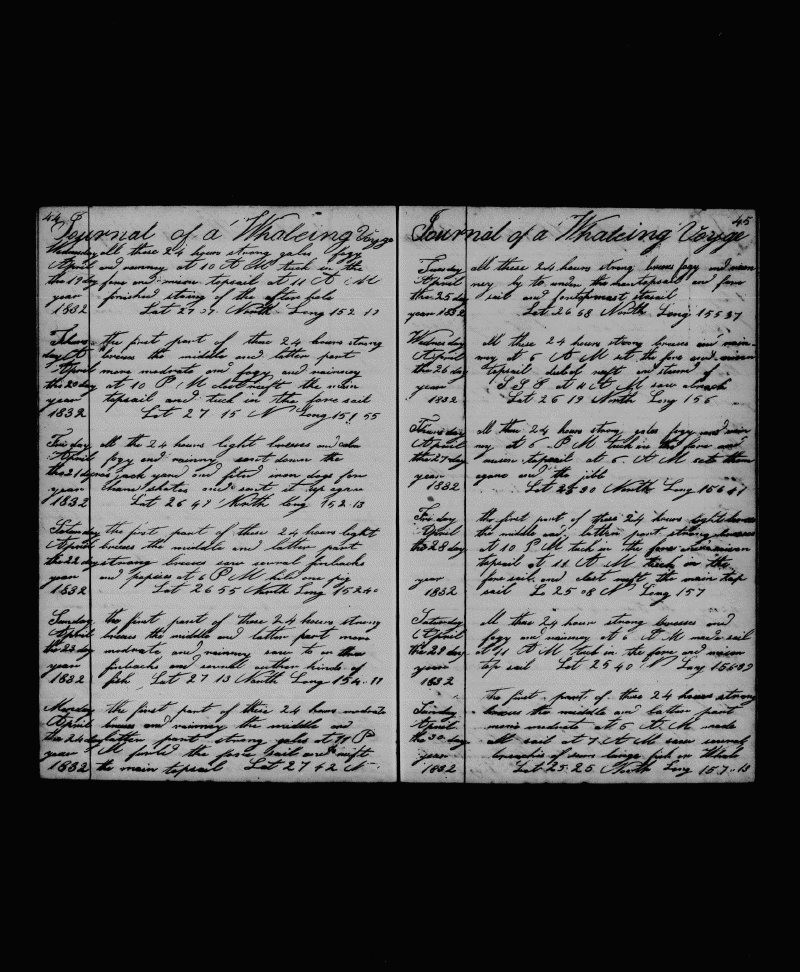 44
Journal of a Whaleing Voyge
Wednesday all these 24 hours strong gales fogy
April and rainny at 10 A M tuck in the
the 19 day fore and mizen topsail at 11 A M
year finished stoing of the after hole
1832 Lat 27 07 North Long 152 17
Thurs the first part of these 24 hours strong
day A breeses the middle and latter part
April more modrate and fogy and rainney
the 20 day at 10 P M clost reeft the main
year topsail and tuck in the fore sail
1832 Lat 27 15 N Long 151 55
Friday all the 24 hours light breeses and calm
April fogy and rainny sent down the
the 21 day jack yard and fited iron dogs for
year chane shetes and sent it up agane
1832 Lat 26 47 North long 152 13
Saturday the first part of these 24 hours light
April breeses the middle and latter part
the 22 day strong breeses saw serval finbacks
year and popises at 6 P M kild one pig
1832 Lat 26 55 North Long 152 40
Sunday the first part of these 24 hours strong
April breeses the middle and latter part more
the 23 day modrate and rainney saw to or three
year finbacks and serval other kinds of
1832 fish Lat 27 13 North Long 154 17
Monday the first part of these 24 hours modrate
April breeses and rainney the middle and
the 24 day latter part strong gales at 11 P
year M furld the fore sail and reift
1832 the main topsail Lat 27 42 N
45
Journal of a Whaleing Voyge
Tuesday all these 24 hours strong breeses fogy and rain
April ney by to under the main topsail and fore
the 25 day sail and foretopmast stasail
year 1832 Lat 26 68 North Long 155 37
Wednesday all these 24 hours strong breeses and rain
April ney at 6 A M set the fore and mizen
the 26 day topsail dubel reft and steard of
year S S E at 11 A M saw a
1832 Lat 26 19 North Long 156
Thursday all these 24 hours strong gales fogy and rain
April ney at 6 P M tuck in the fore and
the 27 day mizen topsail at 6 A M sate them
year agane and the jibb
1832 Lat 25 30 North Long 156 47
Friday the first part of these 24 hours light breeses
April the middle and latter part strong breeses
the 28 day at 10 P M tuck in the fore and mizen
topsail at 11 A M tuck in the
year fore sail and clost reeft the main top
1832 sail L 25 08 N Long 157
Saturday all these 24 hours strong breeses and
April fogy and rainney at 6 A M made sail
the 29 day at 11 A M tuck in the fore and mizen
year top sail Lat 25 40 N Long 156 39
1832
the first part of these 24 hours strong
Sunday breeses the middle and latter part
April more modrate at 5 A M made
the 30 day all sail at 7 A M saw serval
year of large fish or Whale
1832 Lat 25 25 North Long 157 13